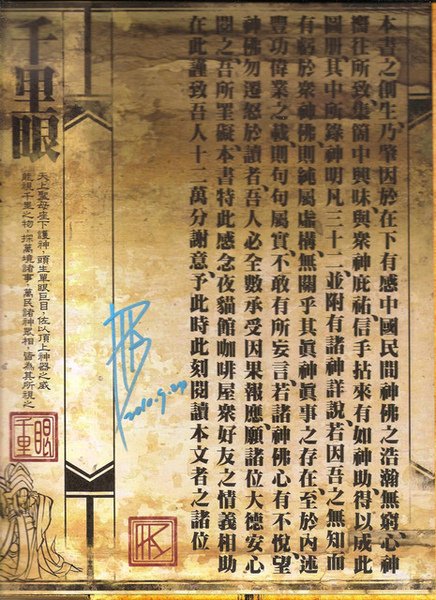 本書之創生乃、肇因於在下有感中國民間神佛之浩瀚無窮、心神
嚮往所致、集箇中興味與眾神庇祐、信手拈來、有如神助、得以成此
圖册、其中所錄神明凡三十二、並附有諸神詳說、若因吾之無知而
有虧於眾神佛、則純屬虛構、無關乎其眞神眞事之存在、至於內述
豐功偉業之載、則句句屬實、不敢有所妄言、若諸神佛心有不悅、望
神佛勿遷怒於讀者、吾人必全數承受因果報應、願諸位大德安心
閱之、吾所罣礙、本書特此感念夜貓館咖啡屋眾好友之情義相助
在此謹致吾人十二萬分謝意、予此時此刻閱讀本文者之諸位
2010.9.29
千里眼
天上聖母座下護神，頭生單眼巨目，佐以頂上神器之威
能視千里之物，探萬境諸事，萬民諸神眾相，皆為其所視之
千里眼